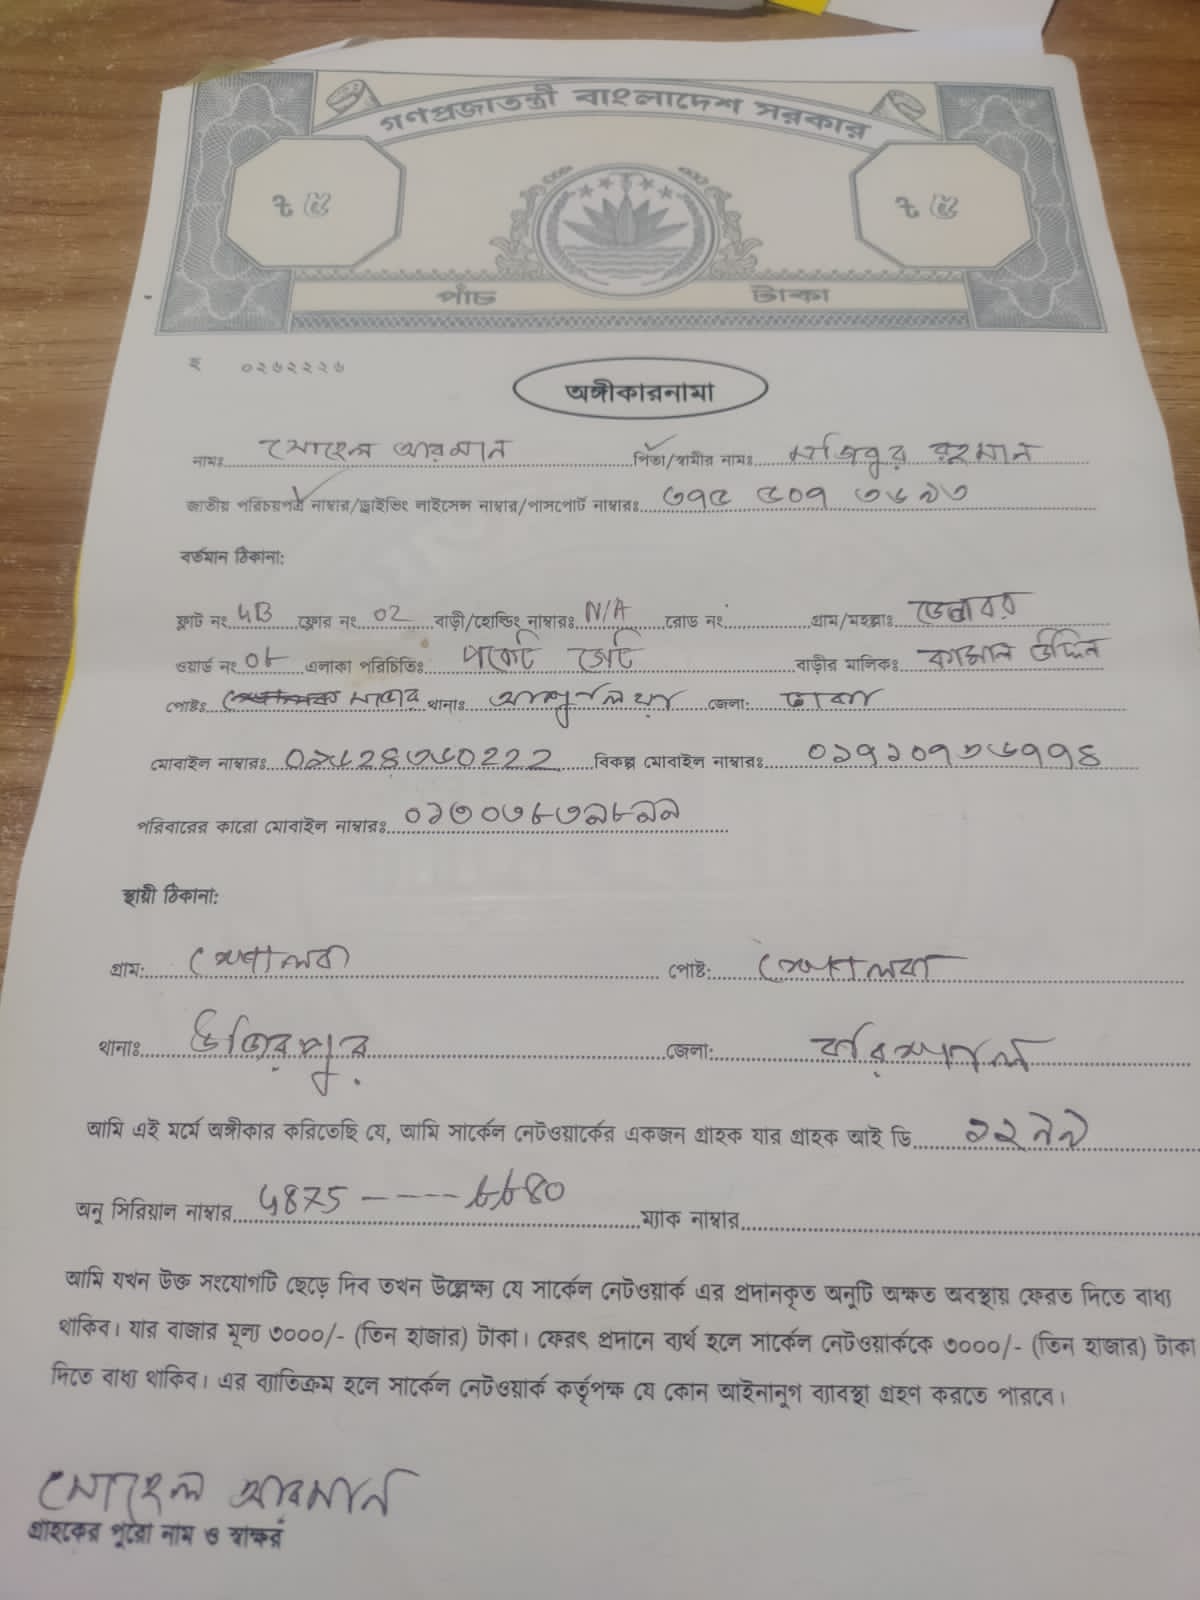 গণপ্রজাতন্ত্রী বাংলাদেশ সরকার
৳ ৫ ৳ ৫
পাঁচ টাকা
০২৬২২২৬
অঙ্গীকারনামা
নামঃ সোহেল আরমান পিতা/স্বামীর নামঃ মজিবুর রহমান
জাতীয় পরিচয়পত্র নাম্বার/ড্রাইভিং লাইসেন্স নাম্বার/পাসপোর্ট নাম্বারঃ
বর্তমান ঠিকানা:
ফ্লাট নং 4B ফ্লোর নং 02 বাড়ী/হোল্ডিং নাম্বারঃ N/A রোড নং গ্রাম/মহল্লাঃ ডেন্ডাবর
ওয়ার্ড নং ০৮ এলাকা পরিচিতিঃ পকেট গেট বাড়ীর মালিকঃ কামাল উদ্দিন
পোষ্টঃ সাভার থানাঃ আশুলিয়া জেলা: ঢাকা
মোবাইল নাম্বারঃ বিকল্প মোবাইল নাম্বারঃ
পরিবারের কারো মোবাইল নাম্বারঃ
স্থায়ী ঠিকানা:
গ্রাম: শোলক পোষ্ট: শোলক
থানাঃ উজিরপুর জেলা: বরিশাল
আমি এই মর্মে অঙ্গীকার করিতেছি যে, আমি সার্কেল নেটওয়ার্কের একজন গ্রাহক যার গ্রাহক আই ডি
অনু সিরিয়াল নাম্বার ম্যাক নাম্বার
আমি যখন উক্ত সংযোগটি ছেড়ে দিব তখন উল্লেক্ষ্য যে সার্কেল নেটওয়ার্ক এর প্রদানকৃত অনুটি অক্ষত অবস্থায় ফেরত দিতে বাধ্য
থাকিব। যার বাজার মূল্য ৩০০০/- (তিন হাজার) টাকা। ফেরৎ প্রদানে ব্যর্থ হলে সার্কেল নেটওয়ার্ককে ৩০০০/- (তিন হাজার) টাকা
দিতে বাধ্য থাকিব। এর ব্যাতিক্রম হলে সার্কেল নেটওয়ার্ক কর্তৃপক্ষ যে কোন আইনানুগ ব্যাবস্থা গ্রহণ করতে পারবে।
সোহেল আরমান
গ্রাহকের পুরো নাম ও স্বাক্ষর